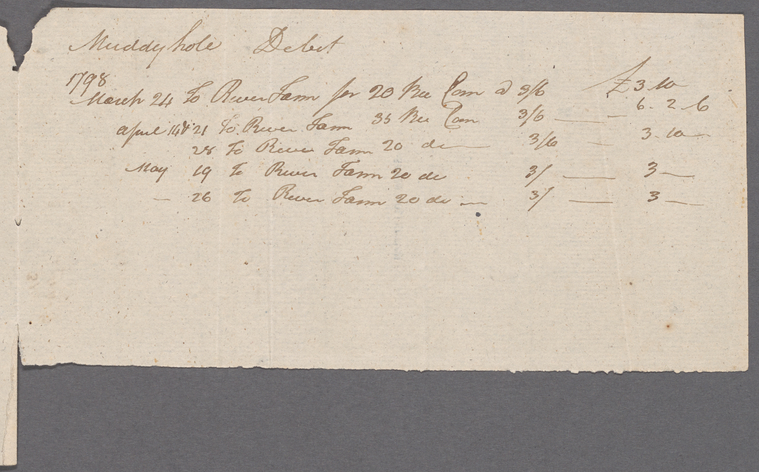 Muddyhole Debit
1798
March 24 To River Farm for 20 Bu Corn @ 3/6 £ 3.10
April 14 & 21 To River Farm 35 Bu Corn 3/6 — 6.2.6
28 To River Farm 20 do — 3/6 3.10 —
May 19 To River Farm 20 do 3/ — 3 —
— 26 To River Farm 20 do — 3/ — 3 —